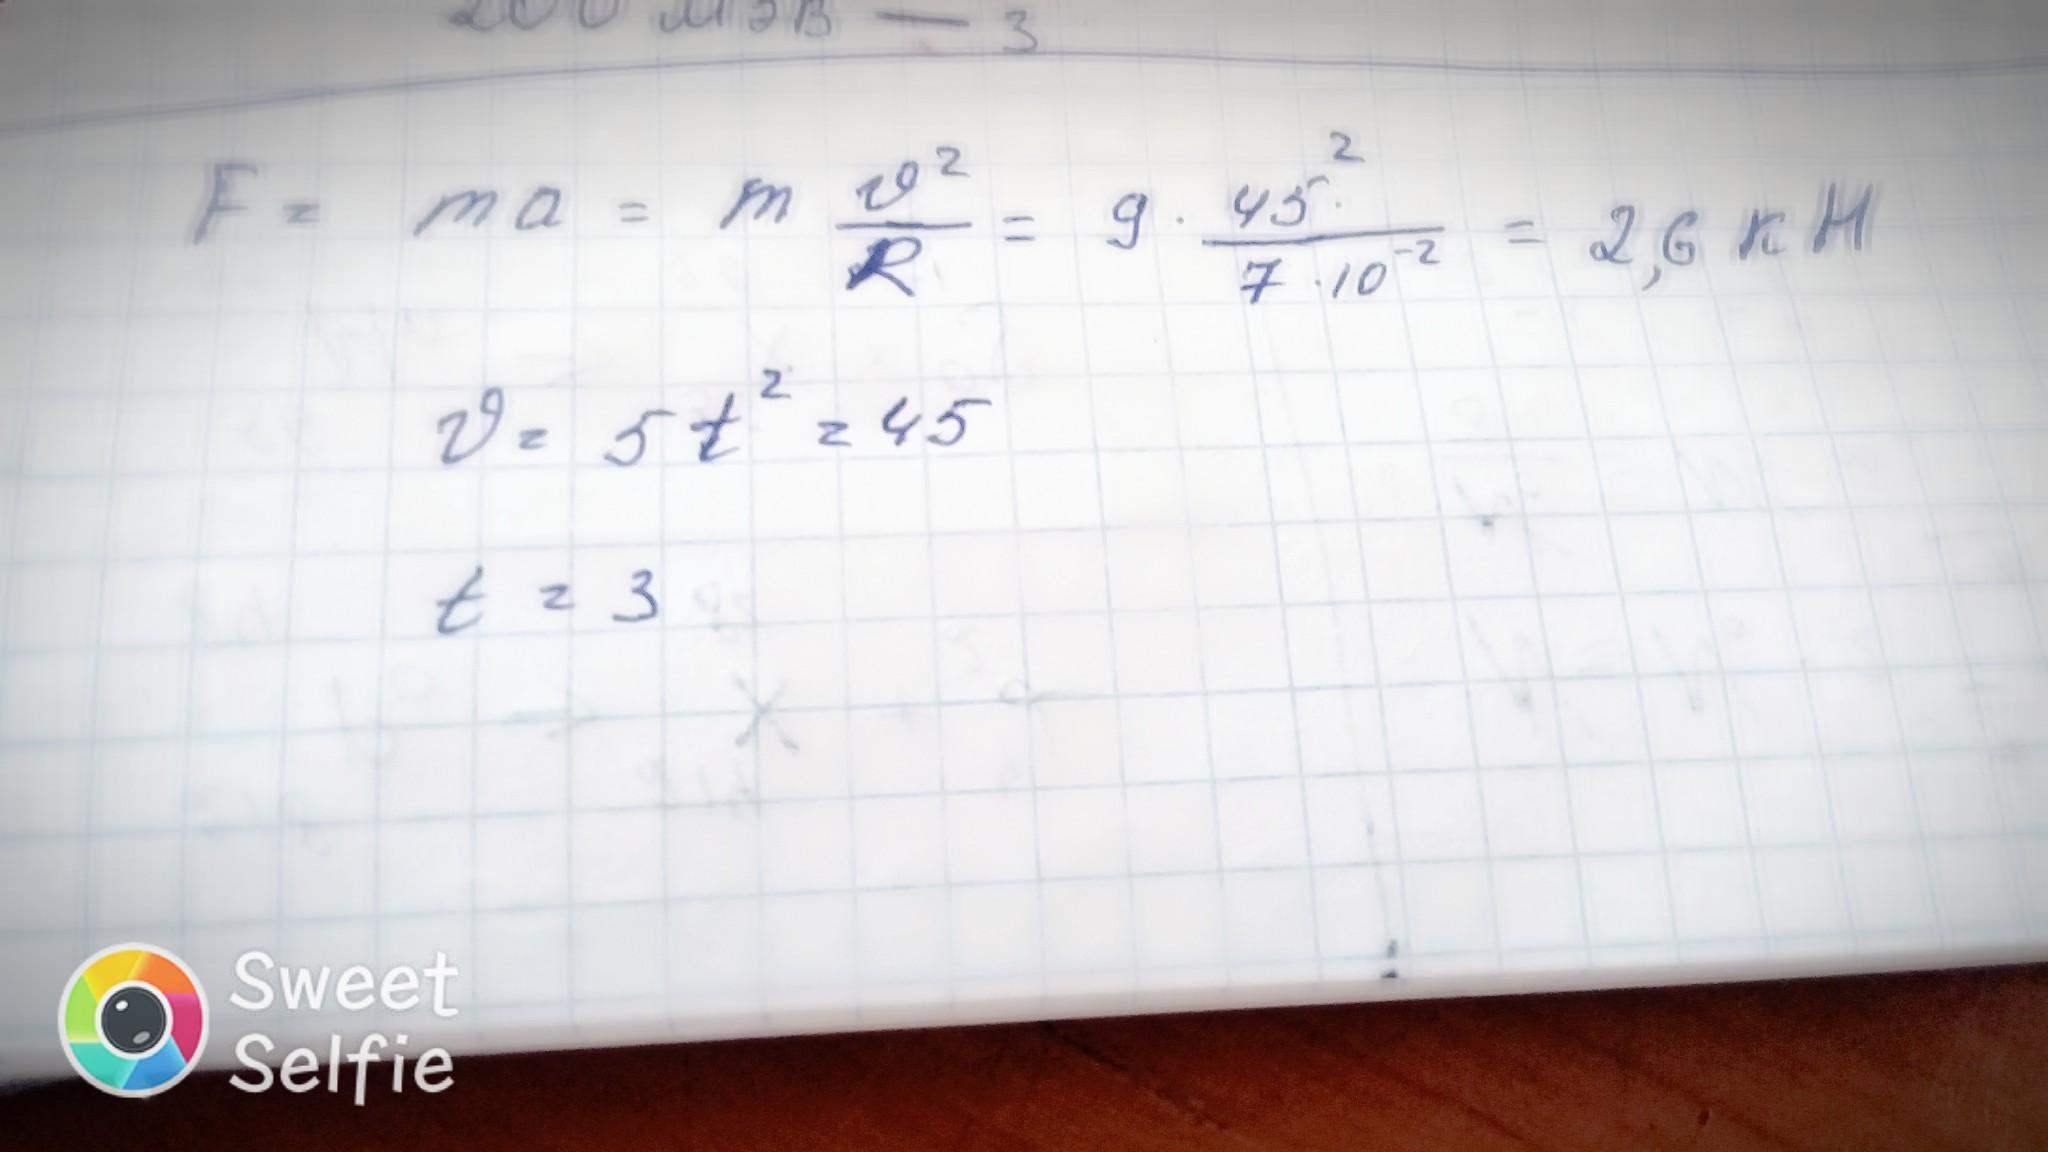 200 МэВ — 3
F = ma = m v²/R = 9 · 45²/7·10⁻² = 2,6 кН
v = 5t² = 45
t = 3
Sweet
Selfie